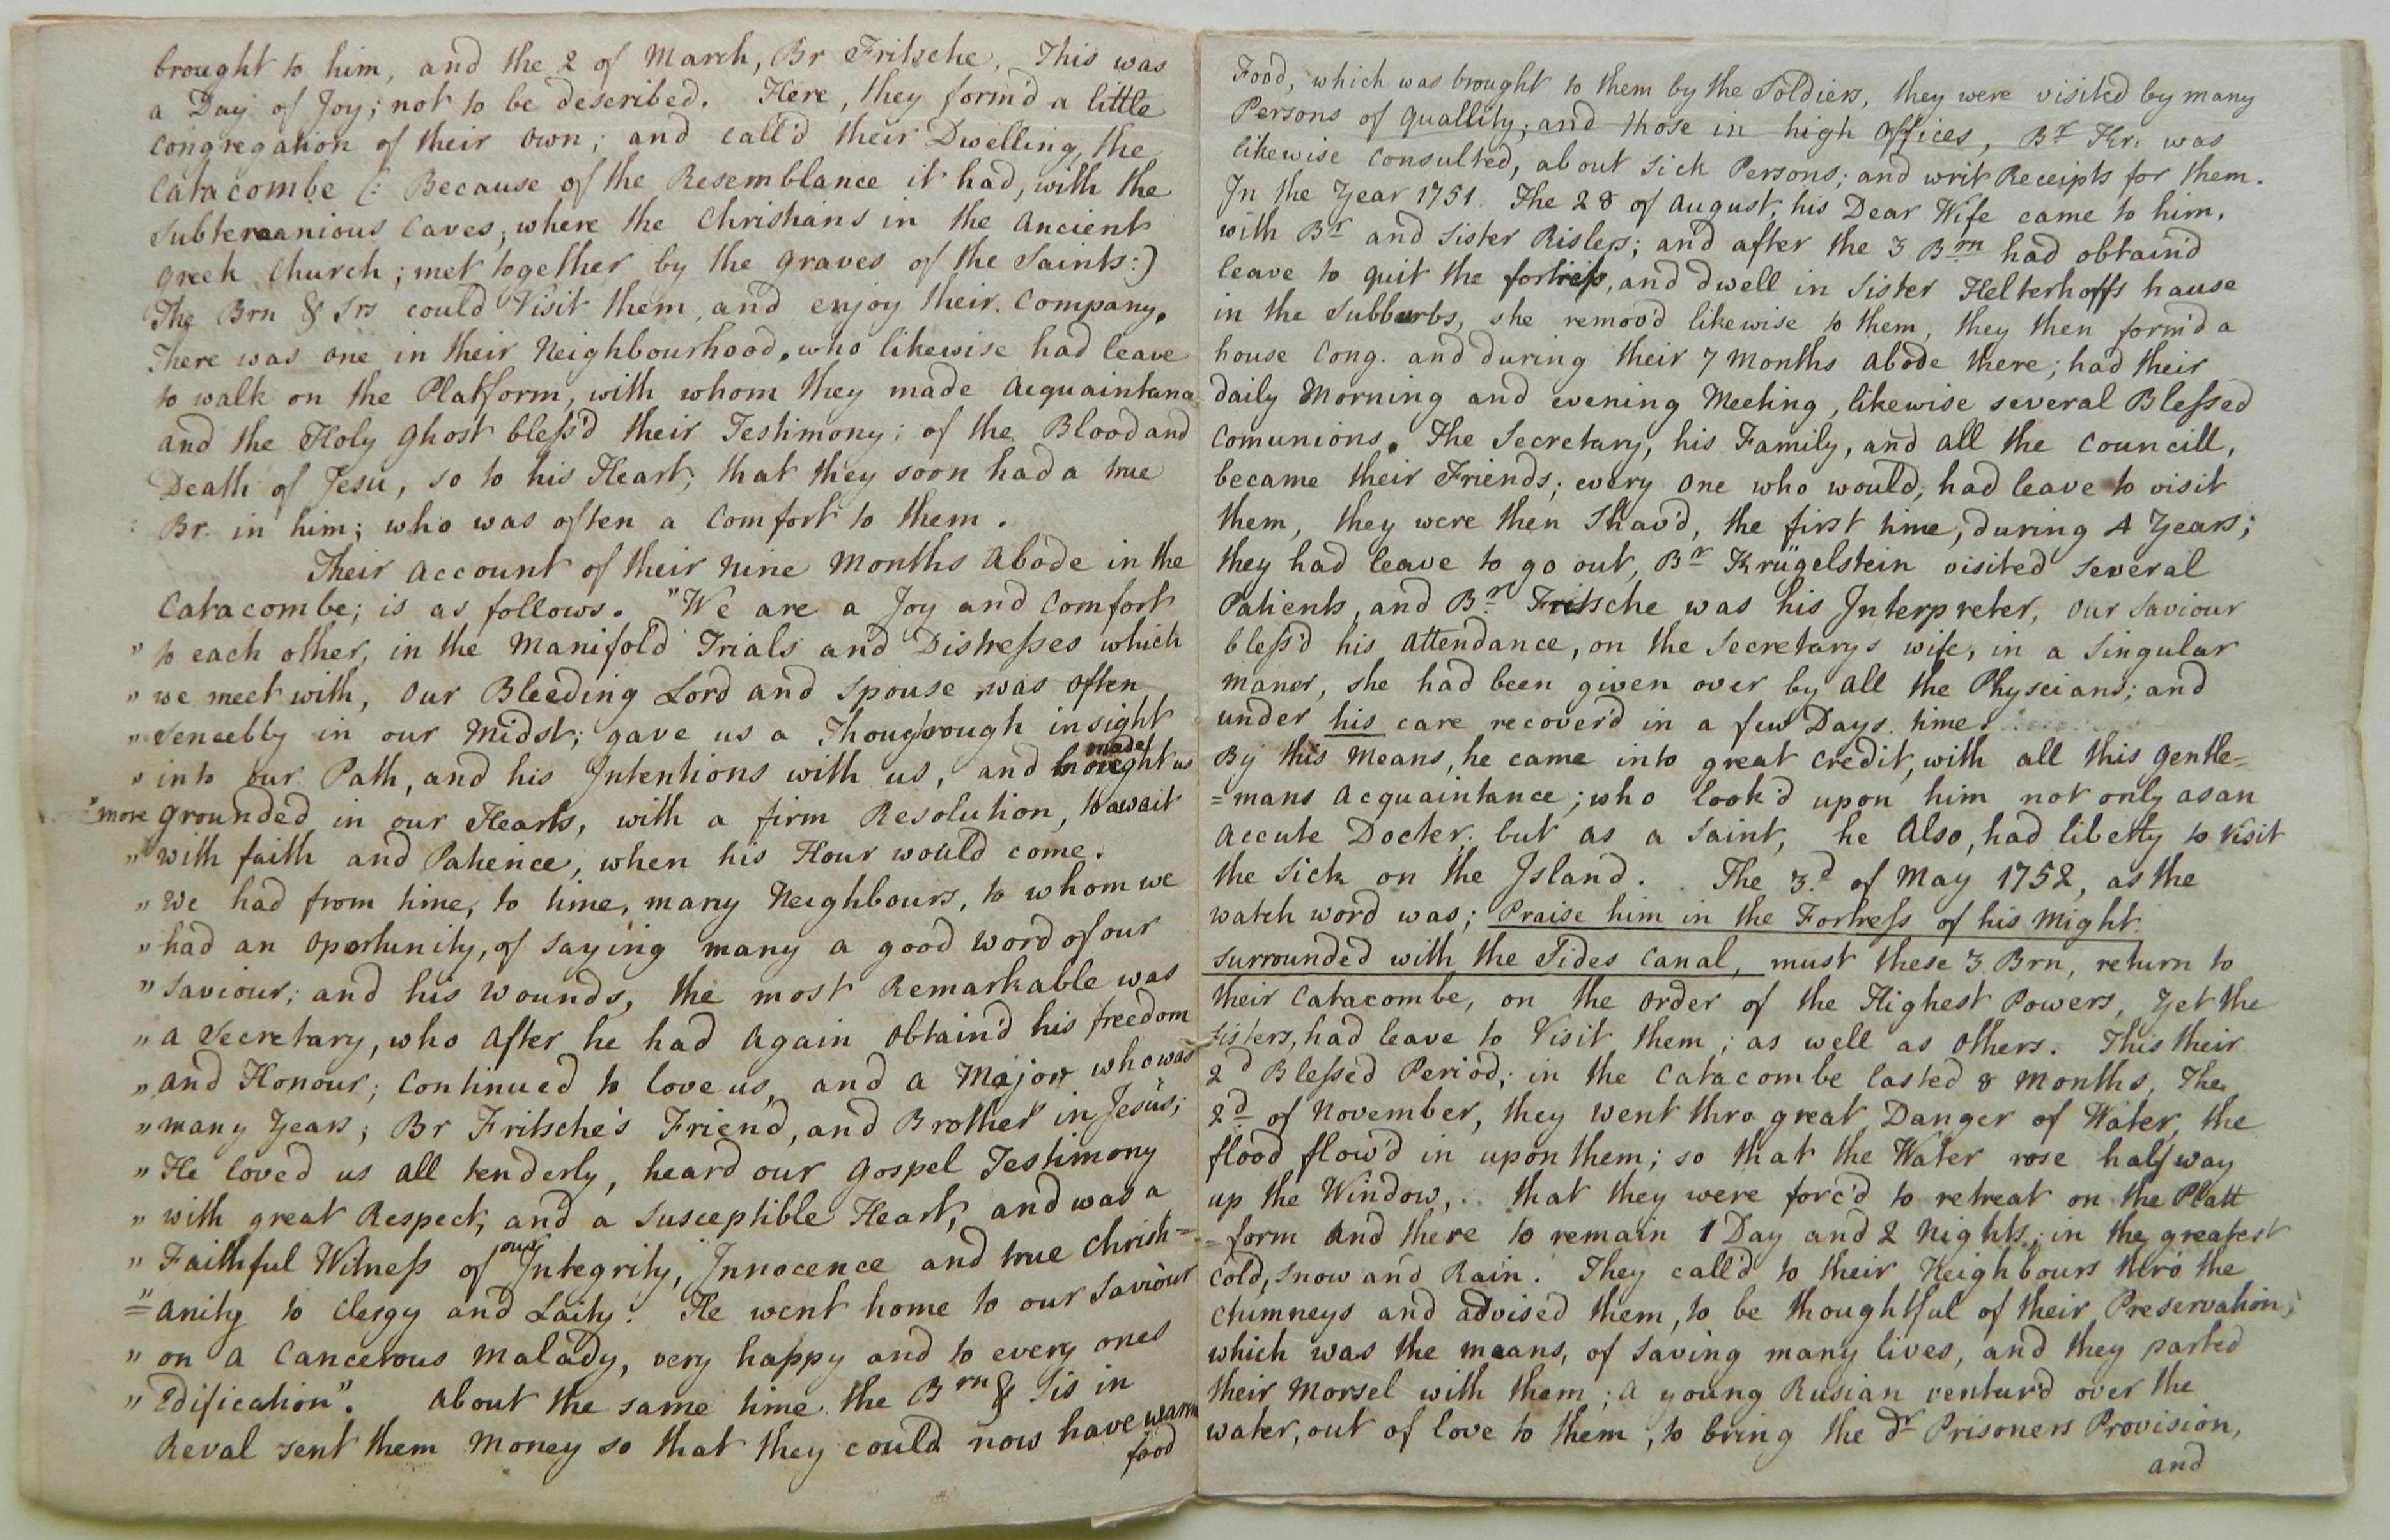 brought to him, and the 2 of March, Br Fritsche, This was
a Day of Joy; not to be described. Here, they form'd a little
Congregation of their own; and call'd their Dwelling, the
Catacombe (: Because of the Resemblance it had, with the
Subteraanious Caves; where the Christians in the Ancient
Greek Church; met together by the graves of the Saints:)
The Brn & Srs could Visit them, and enjoy their Company.
There was one in their Neighbourhood, who likewise had leave
to walk on the Platform, with whom they made Acquaintana
and the Holy Ghost bless'd their Testimony; of the Blood and
Death of Jesu, so to his Heart; that they soon had a true
Br. in him; who was often a Comfort to them.
Their Account of their Nine Months Abode in the
Catacombe; is as follows. "We are a Joy and Comfort
" to each other, in the Manifold Trials and Distresses which
" we meet with, Our Bleeding Lord and Spouse was often
" Senceebly in our Midst; gave us a Thougrough insight
" into our Path, and his Intentions with us, and made us
" more grounded in our Hearts, with a firm Resolution, to await
" with faith and Patience, when his Hour would come.
" We had from time, to time, many Neighbours, to whom we
" had an Oportunity, of saying many a good word of our
" Saviour; and his Wounds, the most Remarkable was
" a Secretary, who After he had Again Obtain'd his freedom
" and Honour; Continued to love us, and a Major who was
" many Years; Br Fritsche's Friend, and Brother in Jesus;
" He loved us all tenderly, heard our Gospel Testimony
" with great Respect, and a Susceptible Heart, and was a
" Faithful Witness of our Integrity, Innocence and true Christ=
"=anity to Clergy and Laity. He went home to our Saviour
" on a Cancerous Malady, very happy and to every ones
" Edification". About the same time the Brn & Sis in
Reval sent them Money so that they could now have warm
food
Food, which was brought to them by the Soldiers, they were visited by many
Persons of Quallity; and those in high Offices, Br Kr. was
likewise Consulted, about Sick Persons; and writ Receipts for them.
In the Year 1751. The 28 of August, his Dear Wife came to him,
with Br and Sister Rislers; and after the 3 Brn had obtain'd
leave to quit the fortress, and dwell in Sister Helterhoffs hause
in the Subburbs, she remov'd likewise to them, they then form'd a
house Cong. and during their 7 Months Abode there; had their
daily Morning and evening Meeting, likewise several Blessed
Comunions. The Secretary, his Family, and all the Councill,
became their Friends; every one who would, had leave to visit
them, they were then Shav'd, the first time, during 4 Years;
they had leave to go out, Br Krügelstein visited Several
Patients, and Br Fritsche was his Interpreter, Our Saviour
bless'd his Attendance, on the Secretarys wife, in a Singular
maner, she had been given over by all the Physcians; and
under his care recover'd in a few Days time.
By this Means, he came into great Credit, with all this Gentle=
=mans Acquaintance; who look'd upon him not only as an
Accute Docter; but as a Saint, he Also, had liberty to Visit
the Sick on the Island. The 3.d of May 1752, as the
watch word was; Praise him in the Fortress of his Might
surrounded with the Tides Canal, must these 3 Brn, return to
their Catacombe, on the Order of the Highest Powers, Yet the
Sisters, had leave to Visit them; as well as Others. This their
2d Blessed Period; in the Catacombe lasted 8 Months, The
2d of November, they went thro great Danger of Water, the
flood flow'd in upon them; so that the Water rose half way
up the Window, that they were forc'd to retreat on the Platt
=form and there to remain 1 Day and 2 Nights; in the greatest
Cold, Snow and Rain. They call'd to their Neighbours thro the
Chimneys and advised them, to be thoughtful of their Preservation,
which was the means, of saving many lives, and they parted
their Morsel with them; A young Rusian ventur'd over the
water, out of love to them, to bring the dr Prisoners Provision,
and